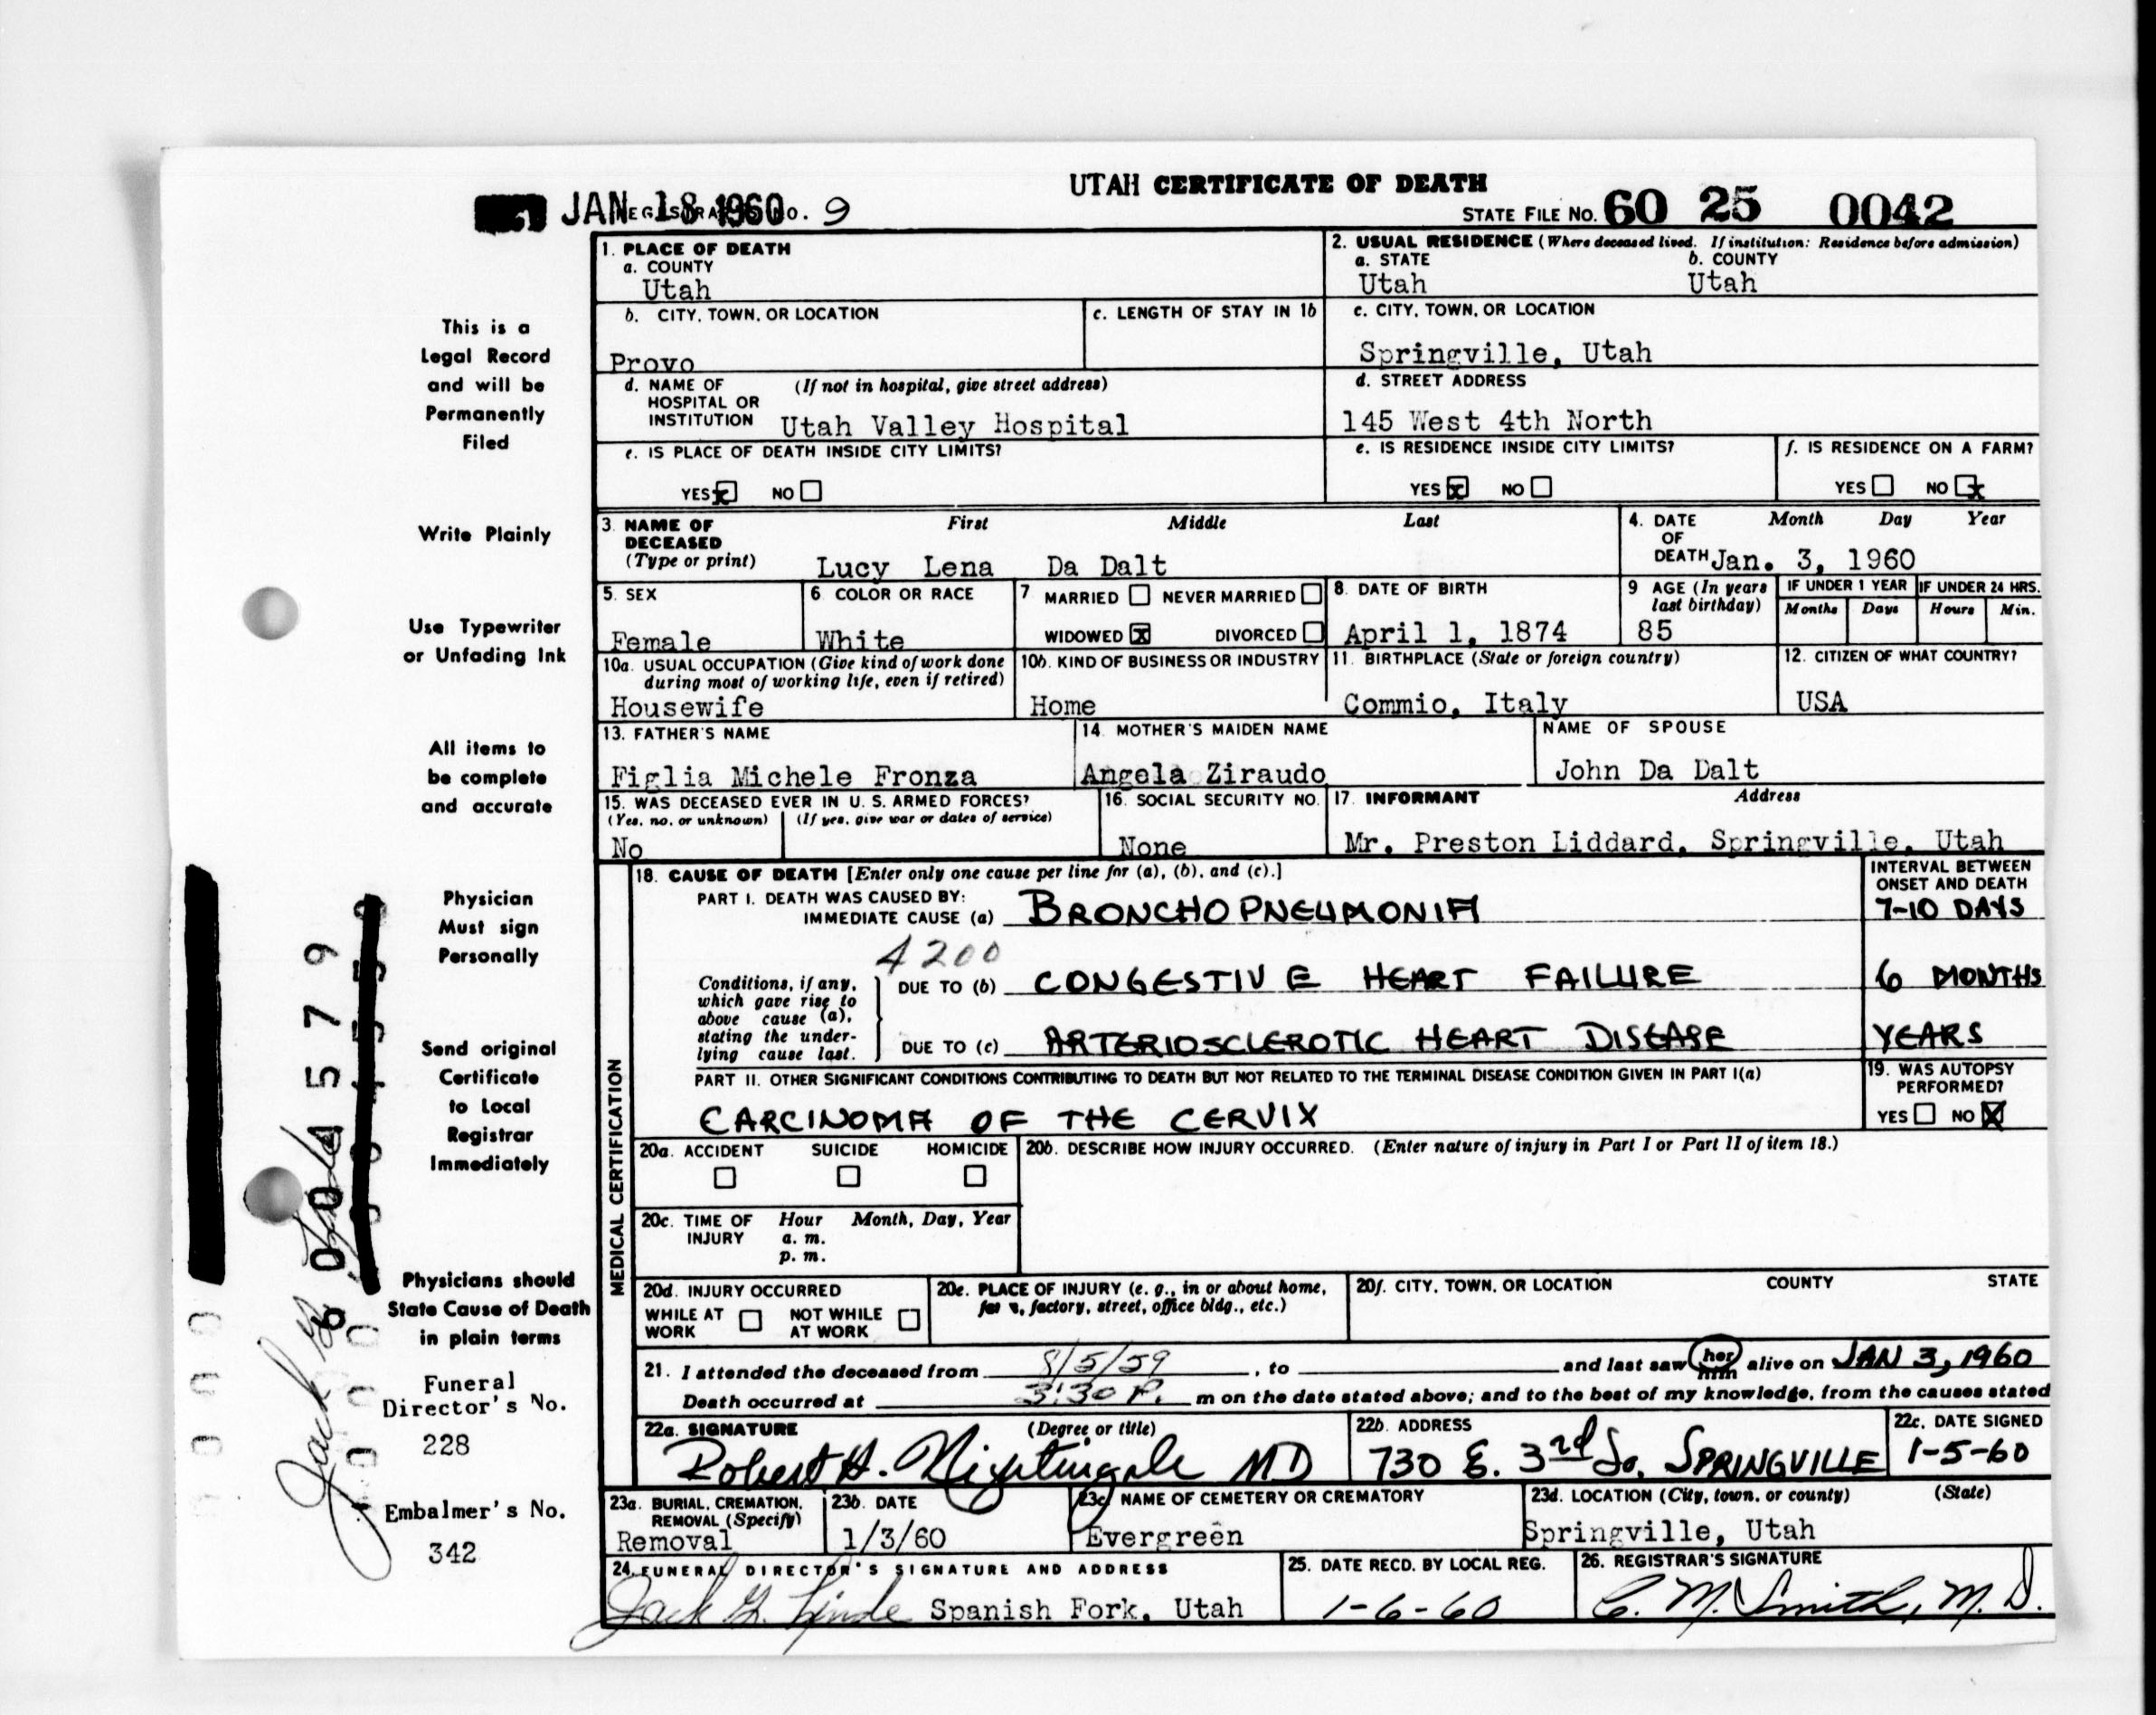 UTAH CERTIFICATE OF DEATH
JAN 18 1960 REGISTRAR'S NO. 9
STATE FILE NO. 60 25 0042
1. PLACE OF DEATH
a. COUNTY
Utah
2. USUAL RESIDENCE (Where deceased lived. If institution: Residence before admission)
a. STATE b. COUNTY
Utah Utah
b. CITY, TOWN, OR LOCATION
Provo
c. LENGTH OF STAY IN 1b
c. CITY, TOWN, OR LOCATION
Springville, Utah
d. NAME OF (If not in hospital, give street address)
HOSPITAL OR
INSTITUTION Utah Valley Hospital
d. STREET ADDRESS
145 West 4th North
e. IS PLACE OF DEATH INSIDE CITY LIMITS?
YES x NO
e. IS RESIDENCE INSIDE CITY LIMITS?
YES x NO
f. IS RESIDENCE ON A FARM?
YES NO x
3. NAME OF First Middle Last
DECEASED
(Type or print) Lucy Lena Da Dalt
4. DATE Month Day Year
OF
DEATH Jan. 3, 1960
5. SEX
Female
6 COLOR OR RACE
White
7 MARRIED NEVER MARRIED
WIDOWED x DIVORCED
8. DATE OF BIRTH
April 1, 1874
9 AGE (In years
last birthday)
85
IF UNDER 1 YEAR
Months Days
IF UNDER 24 HRS.
Hours Min.
10a. USUAL OCCUPATION (Give kind of work done
during most of working life, even if retired)
Housewife
10b. KIND OF BUSINESS OR INDUSTRY
Home
11. BIRTHPLACE (State or foreign country)
Commio, Italy
12. CITIZEN OF WHAT COUNTRY?
USA
13. FATHER'S NAME
Figlia Michele Fronza
14. MOTHER'S MAIDEN NAME
Angela Ziraudo
NAME OF SPOUSE
John Da Dalt
15. WAS DECEASED EVER IN U. S. ARMED FORCES?
(Yes, no, or unknown) (If yes, give war or dates of service)
No
16. SOCIAL SECURITY NO.
None
17. INFORMANT Address
Mr. Preston Liddard, Springville, Utah
MEDICAL CERTIFICATION
18. CAUSE OF DEATH [Enter only one cause per line for (a), (b), and (c).]
INTERVAL BETWEEN
ONSET AND DEATH
PART I. DEATH WAS CAUSED BY:
IMMEDIATE CAUSE (a) BRONCHOPNEUMONIA 7-10 DAYS
4200
Conditions, if any,
which gave rise to
above cause (a),
stating the under-
lying cause last.
DUE TO (b) CONGESTIVE HEART FAILURE 6 MONTHS
DUE TO (c) ARTERIOSCLEROTIC HEART DISEASE YEARS
PART II. OTHER SIGNIFICANT CONDITIONS CONTRIBUTING TO DEATH BUT NOT RELATED TO THE TERMINAL DISEASE CONDITION GIVEN IN PART I(a)
CARCINOMA OF THE CERVIX
19. WAS AUTOPSY
PERFORMED?
YES NO X
20a. ACCIDENT SUICIDE HOMICIDE
20b. DESCRIBE HOW INJURY OCCURRED. (Enter nature of injury in Part I or Part II of item 18.)
20c. TIME OF Hour Month, Day, Year
INJURY a. m.
p. m.
20d. INJURY OCCURRED
WHILE AT NOT WHILE
WORK AT WORK
20e. PLACE OF INJURY (e. g., in or about home,
factory, street, office bldg., etc.)
20f. CITY, TOWN, OR LOCATION COUNTY STATE
21. I attended the deceased from 8/5/59, to and last saw her him alive on JAN 3, 1960
Death occurred at 3:30 P. m on the date stated above; and to the best of my knowledge, from the causes stated
22a. SIGNATURE (Degree or title)
Robert H. Nightingale MD
22b. ADDRESS
730 E. 3rd So. SPRINGVILLE
22c. DATE SIGNED
1-5-60
23a. BURIAL, CREMATION,
REMOVAL (Specify)
Removal
23b. DATE
1/3/60
23c. NAME OF CEMETERY OR CREMATORY
Evergreen
23d. LOCATION (City, town, or county) (State)
Springville, Utah
24. FUNERAL DIRECTOR'S SIGNATURE AND ADDRESS
Jack G. Linde Spanish Fork, Utah
25. DATE RECD. BY LOCAL REG.
1-6-60
26. REGISTRAR'S SIGNATURE
C. M. Smith, M. D.
This is a
Legal Record
and will be
Permanently
Filed
Write Plainly
Use Typewriter
or Unfading Ink
All items to
be complete
and accurate
Physician
Must sign
Personally
Send original
Certificate
to Local
Registrar
Immediately
Physicians should
State Cause of Death
in plain terms
Funeral
Director's No.
228
Embalmer's No.
342
6004579